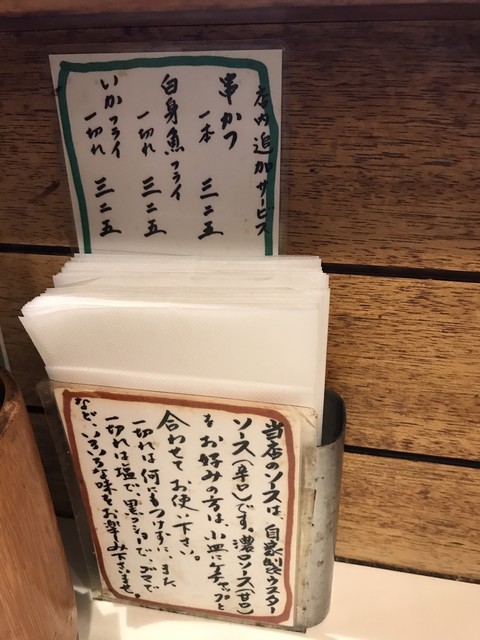 店内追加サービス
串かつ
一本 三二五
白身魚フライ
一切れ 三二五
いかフライ
一切れ 三二五
当店のソースは、自家製ウスター
ソース(辛口)です。濃口ソース(甘口)
をお好みの方は、小皿にケチャップと
合わせてお使い下さい。
一切れは何もつけずに、また
一切れは塩で、黒コショーで、ゴマで
など、いろいろな味をお楽しみ下さいませ。